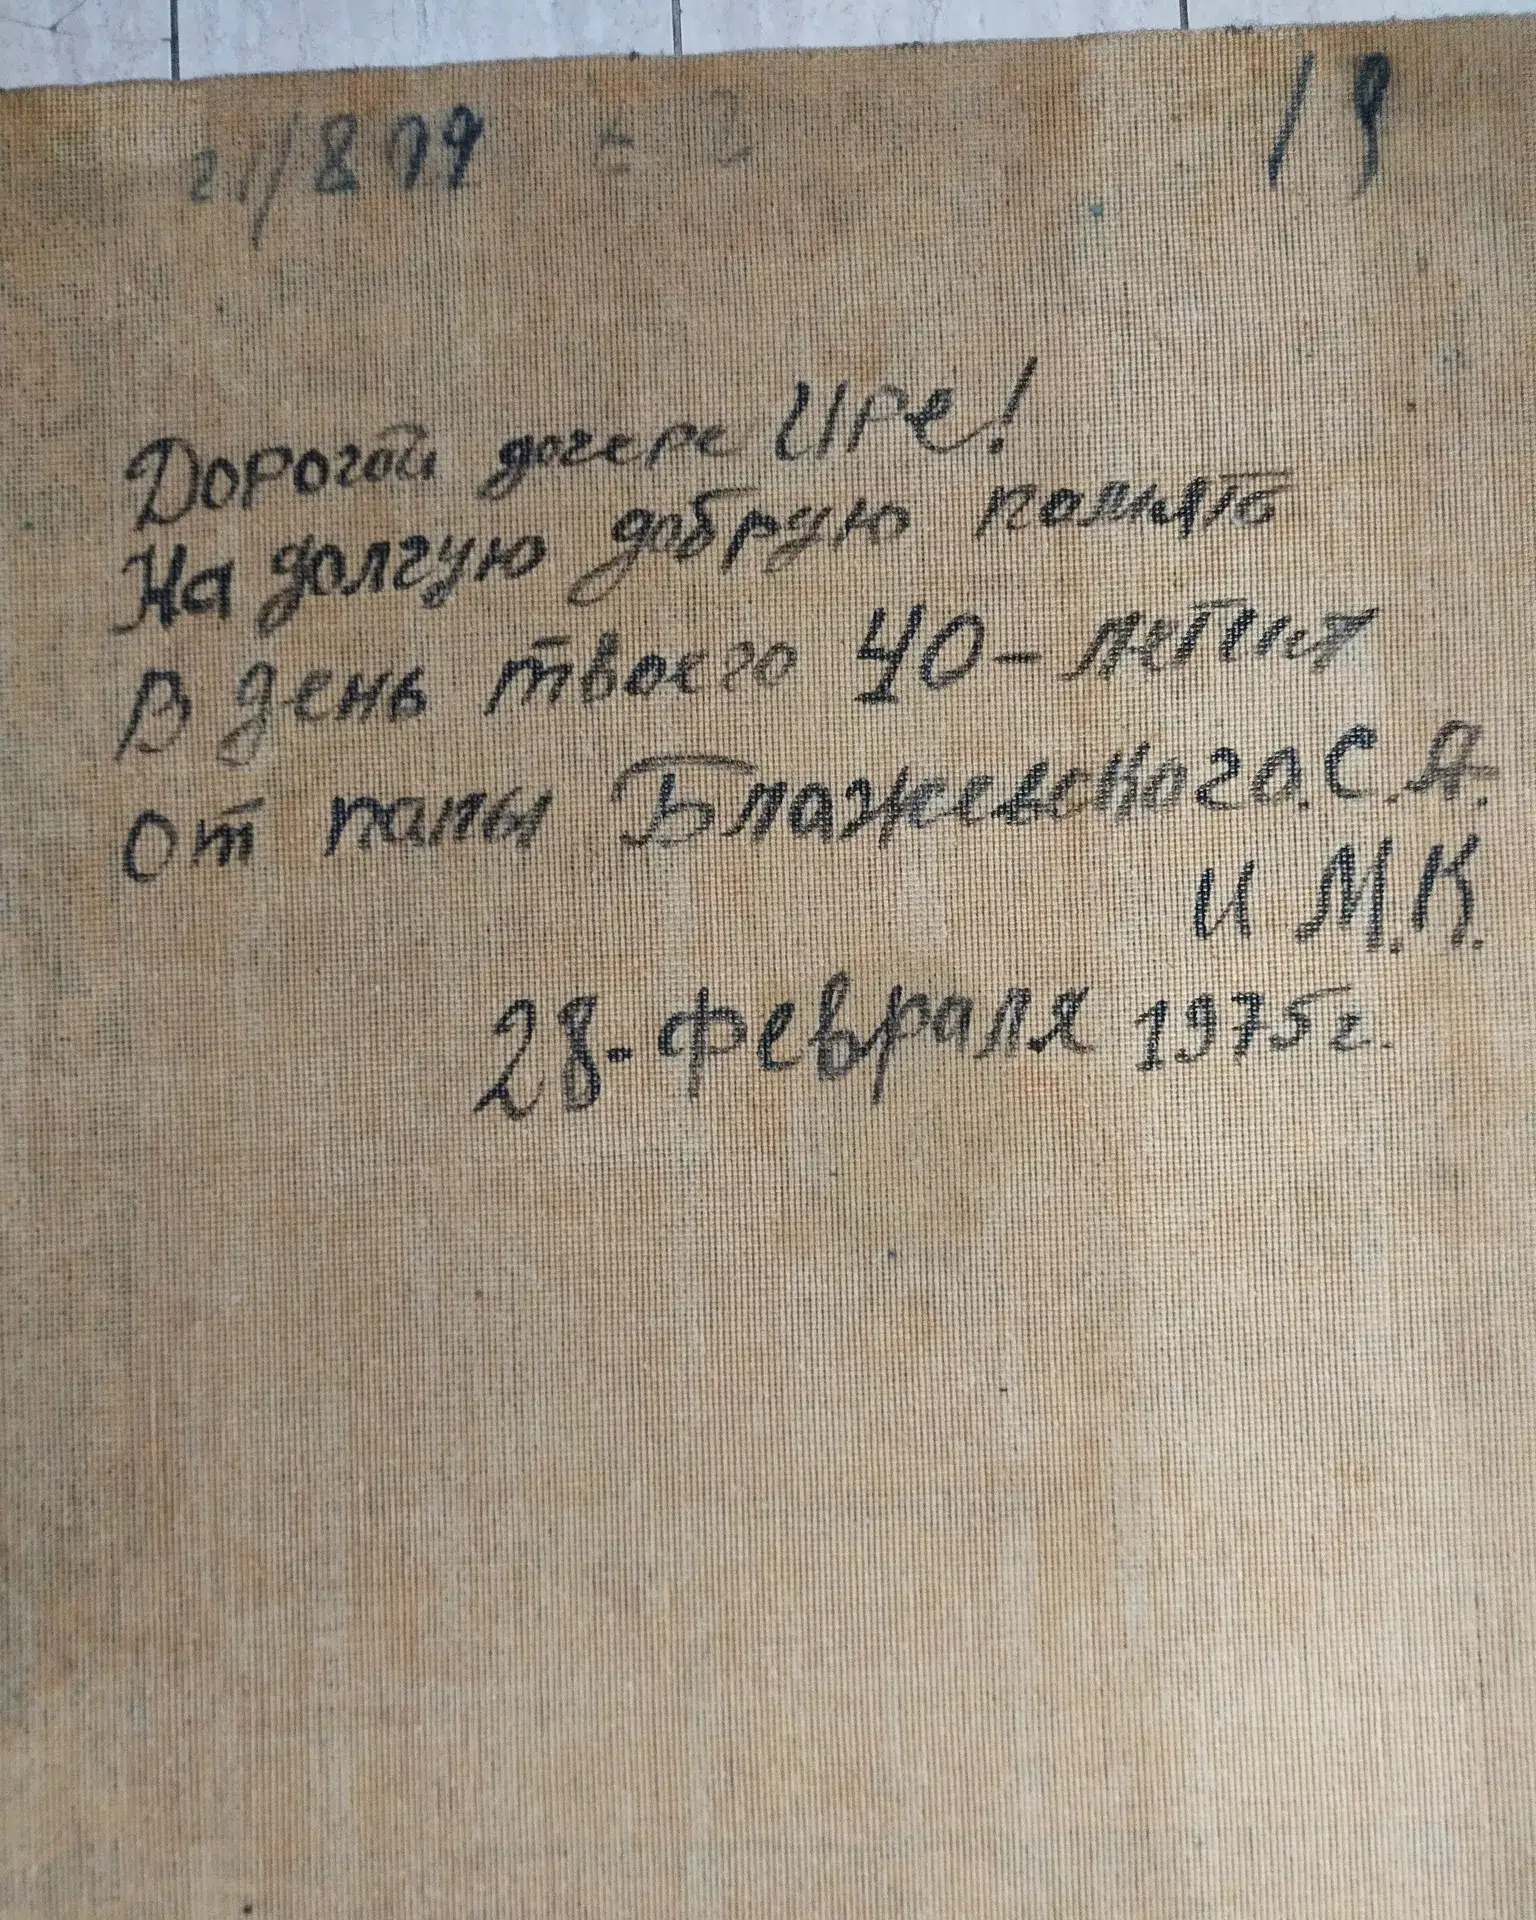 21/879
19
Дорогой дочере Ире!
На долгую добрую память
В день твоего 40-летия
От папы Блажевского.С.Я.
и М.К.
28. февраля 1975г.